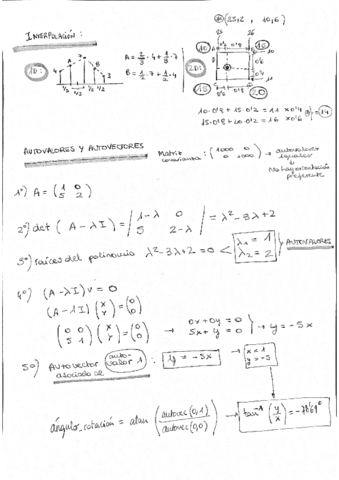 INTERPOLACIÓN:
(25'2, 10'6)
25 26
1D:
A = 2/3 · 4 + 1/3 · 7
B = 1/2 · 7 + 1/2 · 4
4 7 4 3
A B
1/2 1/2 1/2 1/2
2D:
10 0'2 0'8 15
10
0'6
0'4
11
15 20
10·0'8 + 15·0'2 = 11 × 0'4
15·0'8 + 20·0'2 = 16 × 0'6
= 14
AUTOVALORES Y AUTOVECTORES
Matriz covarianza: (1000 0
0 1000) → autovalores iguales
No hay orientación preferente
1º) A = (1 0
5 2)
2º) det (A - λI) = |1-λ 0
5 2-λ| = λ² - 3λ + 2
3º) raíces del polinomio λ² - 3λ + 2 = 0 < λ₁ = 1
λ₂ = 2 } AUTOVALORES
4º) (A - λI) v = 0
(A - 1I) (x y) = (0 0)
(0 0
5 1) (x y) = (0 0) → 0x + 0y = 0
5x + y = 0 } → y = -5x
5º) AUTOVECTOR asociado al autovalor 1: y = -5x → x = 1
y = -5
ángulo_rotación = atan (autovec(0,1) / autovec(0,0)) → tan⁻¹ (y/x) = -78'69º